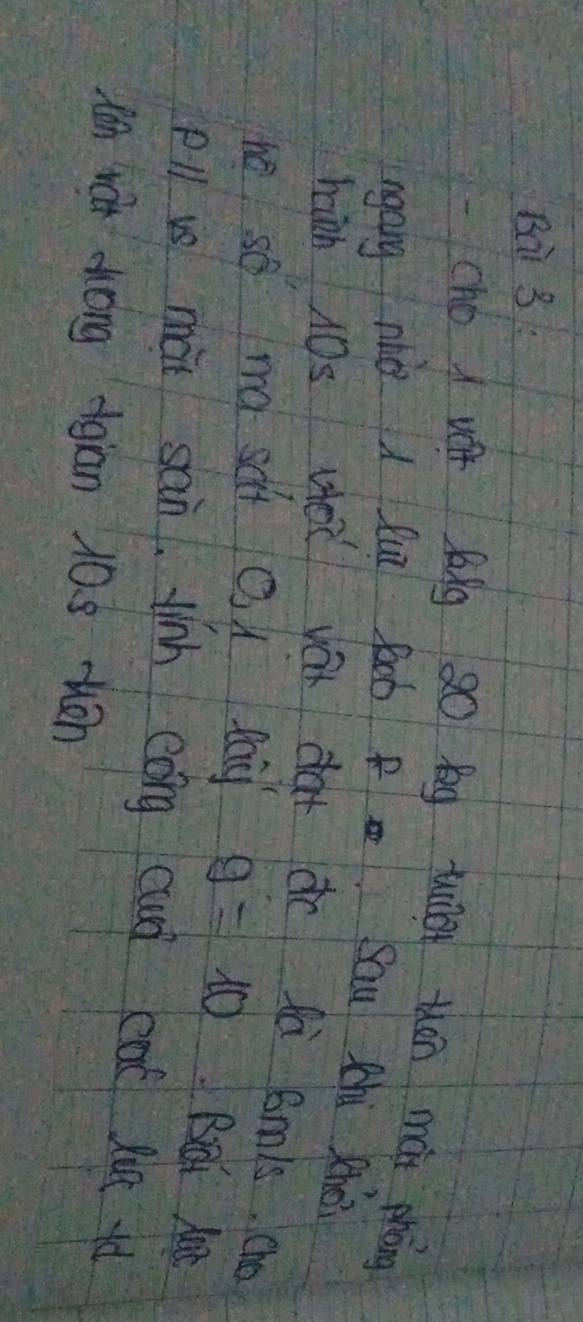 Bài 3:
- Cho 1 vật klg 20 kg trượt trên mặt phẳng
ngang nhờ 1 lực kéo F. Sau khi khởi
hành 10s vtốc vật đạt đc là 6m/s. Cho
hệ số ma sát 0,1 lấy g = 10. Biết lực
F // vs mặt sàn. tính công của các lực td
lên vật trong tgian 10s trên